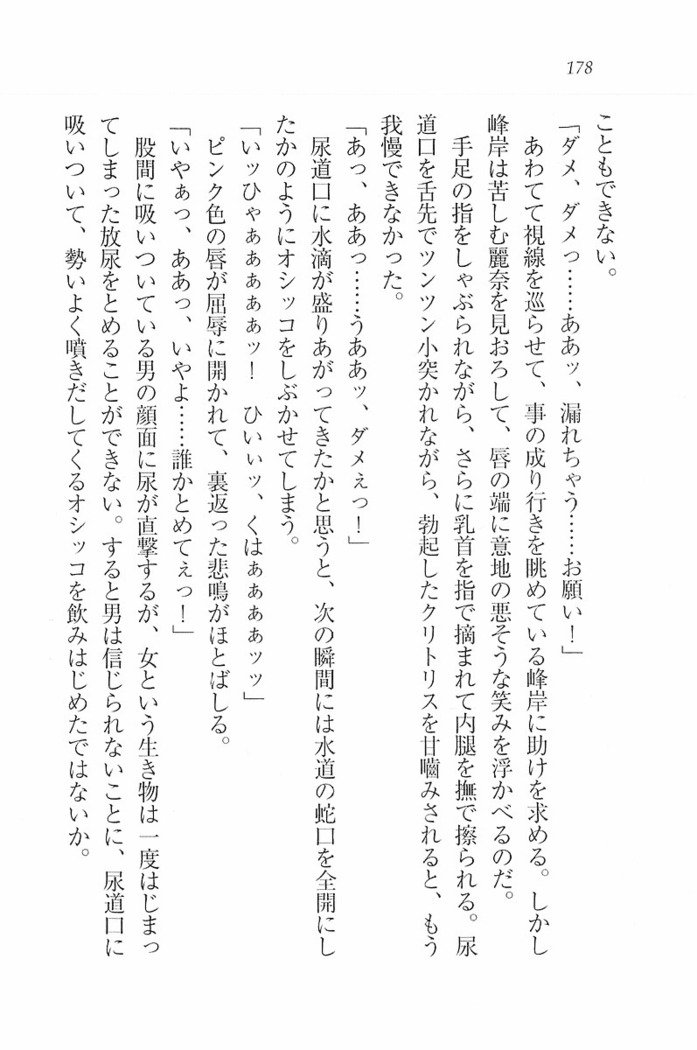 178
こともできない。
「ダメ、ダメっ……ああッ、漏れちゃう……お願い！」
あわてて視線を巡らせて、事の成り行きを眺めている峰岸に助けを求める。しかし
峰岸は苦しむ麗奈を見おろして、唇の端に意地の悪そうな笑みを浮かべるのだ。
手足の指をしゃぶられながら、さらに乳首を指で摘まれて内腿を撫で擦られる。尿
道口を舌先でツンツン小突かれながら、勃起したクリトリスを甘嚙みされると、もう
我慢できなかった。
「あっ、ああっ……うああッ、ダメぇっ！」
尿道口に水滴が盛りあがってきたかと思うと、次の瞬間には水道の蛇口を全開にし
たかのようにオシッコをしぶかせてしまう。
「いッひゃぁぁぁぁぁッ！　ひいぃッ、くはぁぁぁぁッッ」
ピンク色の唇が屈辱に開かれて、裏返った悲鳴がほとばしる。
「いやぁっ、ああっ、いやよ……誰かとめてぇっ！」
股間に吸いついている男の顔面に尿が直撃するが、女という生き物は一度はじまっ
てしまった放尿をとめることができない。すると男は信じられないことに、尿道口に
吸いついて、勢いよく噴きだしてくるオシッコを飲みはじめたではないか。